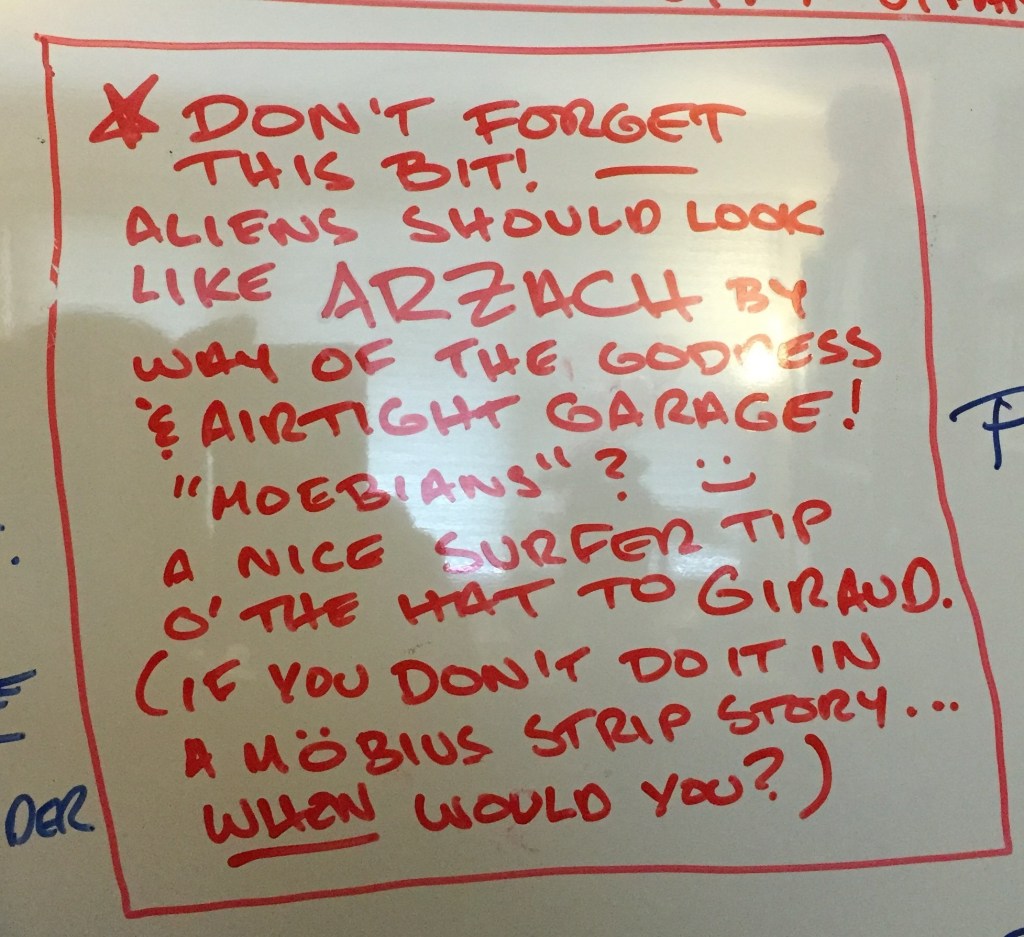 ★ DON'T FORGET
THIS BIT! —
ALIENS SHOULD LOOK
LIKE ARZACH BY
WAY OF THE GODDESS
& AIRTIGHT GARAGE!
"MOEBIANS"? :)
A NICE SURFER TIP
O' THE HAT TO GIRAUD.
(IF YOU DON'T DO IT IN
A MÖBIUS STRIP STORY...
WHEN WOULD YOU?)
DER